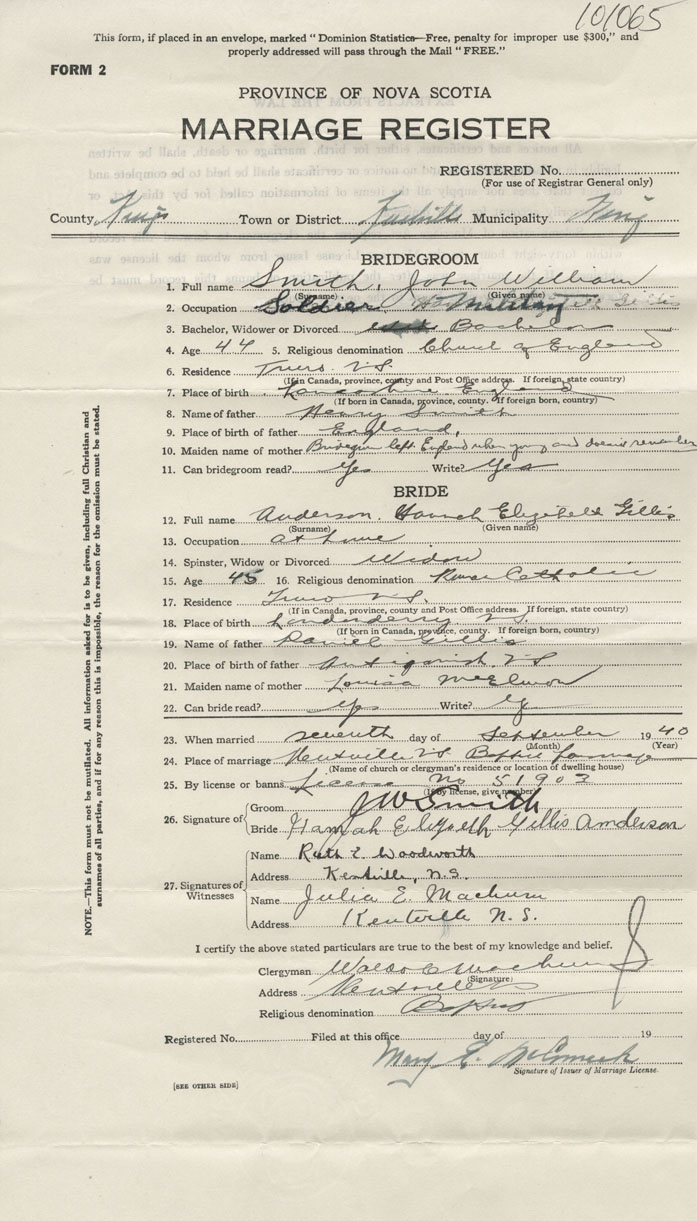 101065
This form, if placed in an envelope, marked "Dominion Statistics—Free, penalty for improper use $300," and
properly addressed will pass through the Mail "FREE."
FORM 2
PROVINCE OF NOVA SCOTIA
MARRIAGE REGISTER
REGISTERED No.
(For use of Registrar General only)
County Kings Town or District Kentville Municipality Kings
BRIDEGROOM
1. Full name Smith, John William
(Surname) (Given name)
2. Occupation Soldier Military
3. Bachelor, Widower or Divorced Bachelor
4. Age 44 5. Religious denomination Church of England
6. Residence Truro N.S.
(If in Canada, province, county and Post Office address. If foreign, state country)
7. Place of birth Lancashire England
(If born in Canada, province, county. If foreign born, country)
8. Name of father Henry Smith
9. Place of birth of father England,
10. Maiden name of mother Bridegroom left England when young and doesn't remember
11. Can bridegroom read? Yes Write? Yes
BRIDE
12. Full name Anderson. Hannah Elizabeth Gillis
(Surname) (Given name)
13. Occupation at home
14. Spinster, Widow or Divorced Widow
15. Age 45 16. Religious denomination Roman Catholic
17. Residence Truro N.S.
(If in Canada, province, county and Post Office address. If foreign, state country)
18. Place of birth Londonderry N.S.
(If born in Canada, province, county. If foreign born, country)
19. Name of father Daniel Gillis
20. Place of birth of father Antigonish N.S.
21. Maiden name of mother Louisa McElmon
22. Can bride read? Yes Write? Yes
23. When married seventh day of September 1940
(Month) (Year)
24. Place of marriage Kentville N.S. Baptist Parsonage
(Name of church or clergyman's residence or location of dwelling house)
25. By license or banns License No 51903
(If by license, give number)
26. Signature of
Groom J W Smith
Bride Hannah Elizabeth Gillis Anderson
27. Signatures of Witnesses
Name Ruth E. Woodworth
Address Kentville, N.S.
Name Julia E. Machum
Address Kentville N.S.
I certify the above stated particulars are true to the best of my knowledge and belief.
Clergyman Waldo C Machum
(Signature)
Address Kentville N.S.
Religious denomination Baptist
Registered No. Filed at this office day of 19
Mary E. McCormick
Signature of Issuer of Marriage License.
[SEE OTHER SIDE]
NOTE.—This form must not be mutilated. All information asked for is to be given, including full Christian and
surnames of all parties, and if for any reason this is impossible, the reason for the omission must be stated.